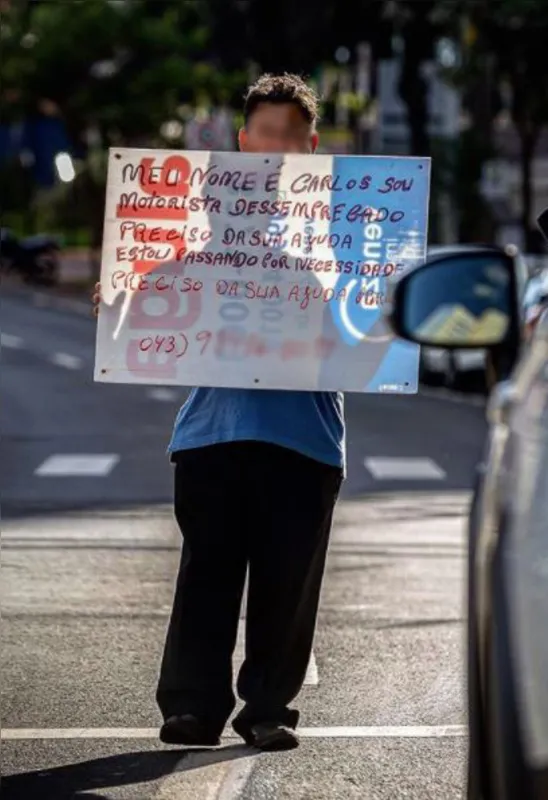 MEU NOME É CARLOS SOU
MOTORISTA DESSEMPREGADO
PRECISO DA SUA AJUDA
ESTOU PASSANDO POR NECESSIDADE
PRECISO DA SUA AJUDA
043) 9